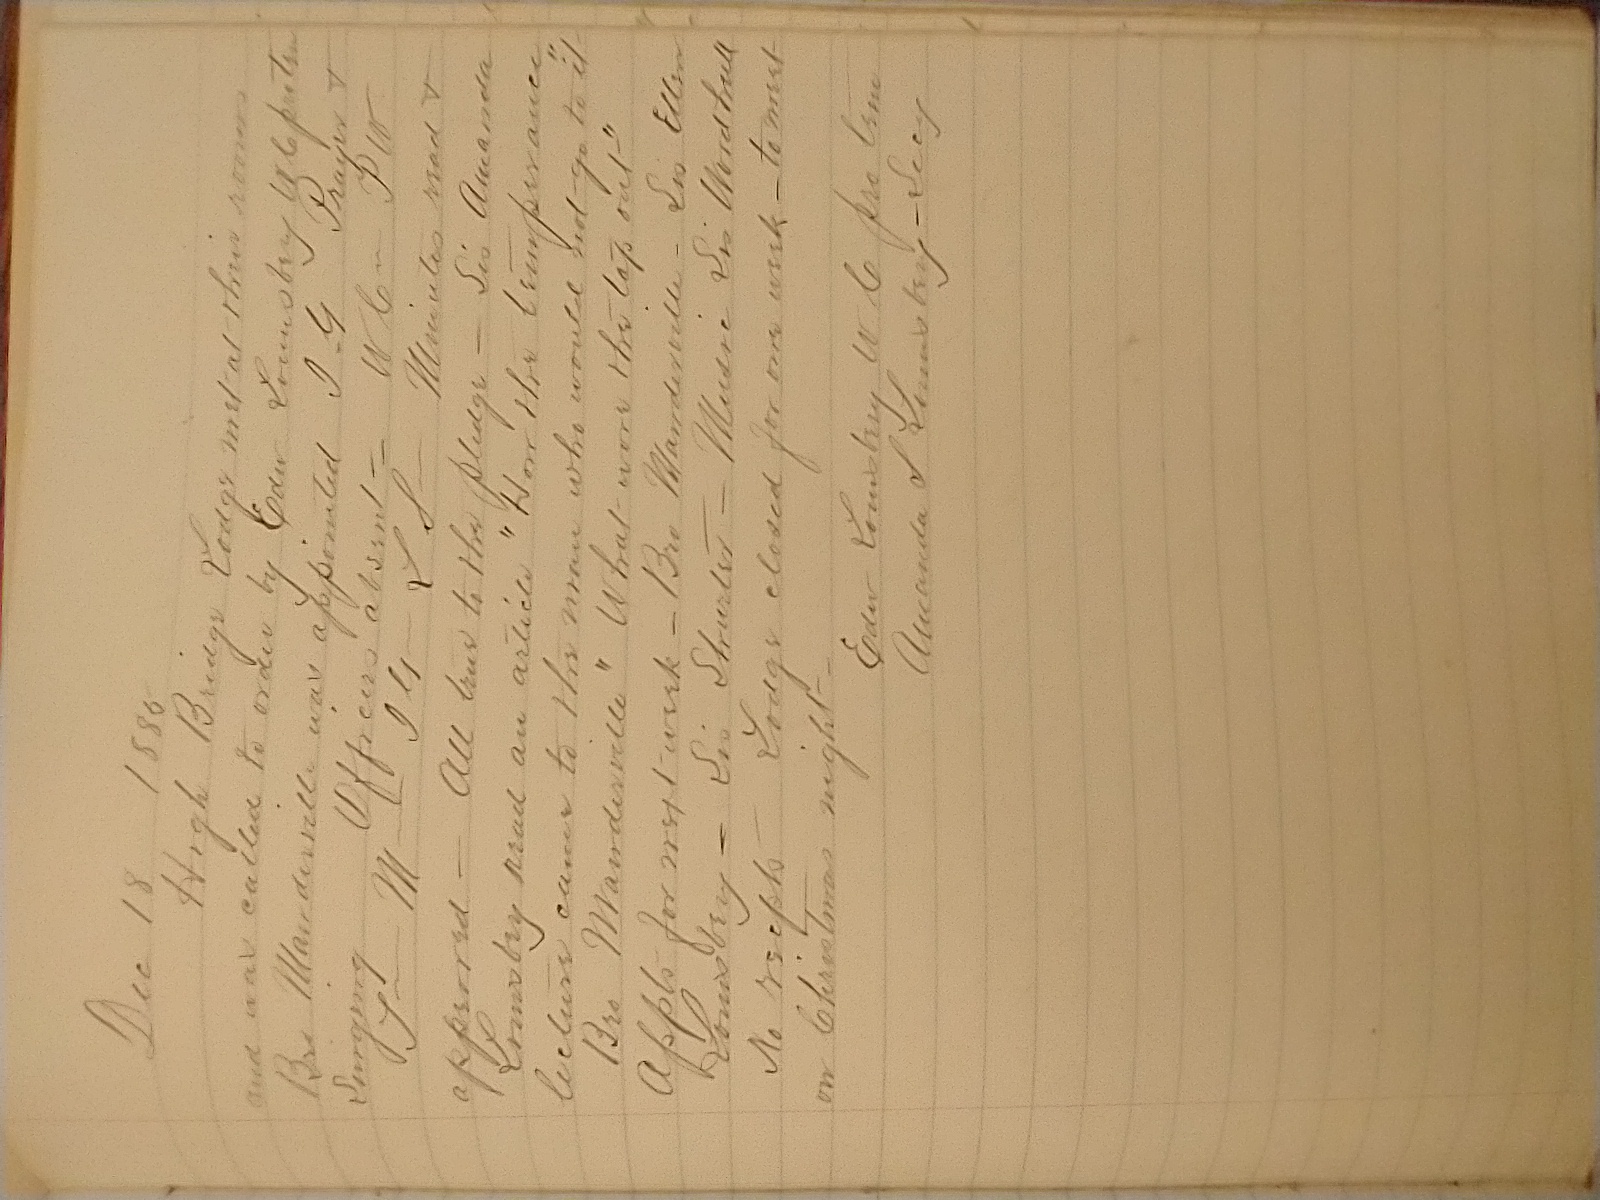 Dec 18 1885
High Bridge Lodge met at their rooms
and was called to order by Edw Lounsbery W C pro tem
Bro Manderville was appointed I G Prayer &
Singing Officers absent — W C — P W
T — M — I G — L S — Minutes read &
approved — All true to the pledge — Sis Amanda
Lounsbery read an article "How the temperance
lecture came to the man who would not go to it"
Bro Manderville "What wore the lap out"
Appts for next week — Bro Manderville — Sis Ellen
Lounsbery — Sis Shurter — Music Sis Woodhull
No recpts Lodge closed for one week — to meet
on Christmas night —
Edw Lounsbery W C pro tem
Amanda S Lounsbery — Secy